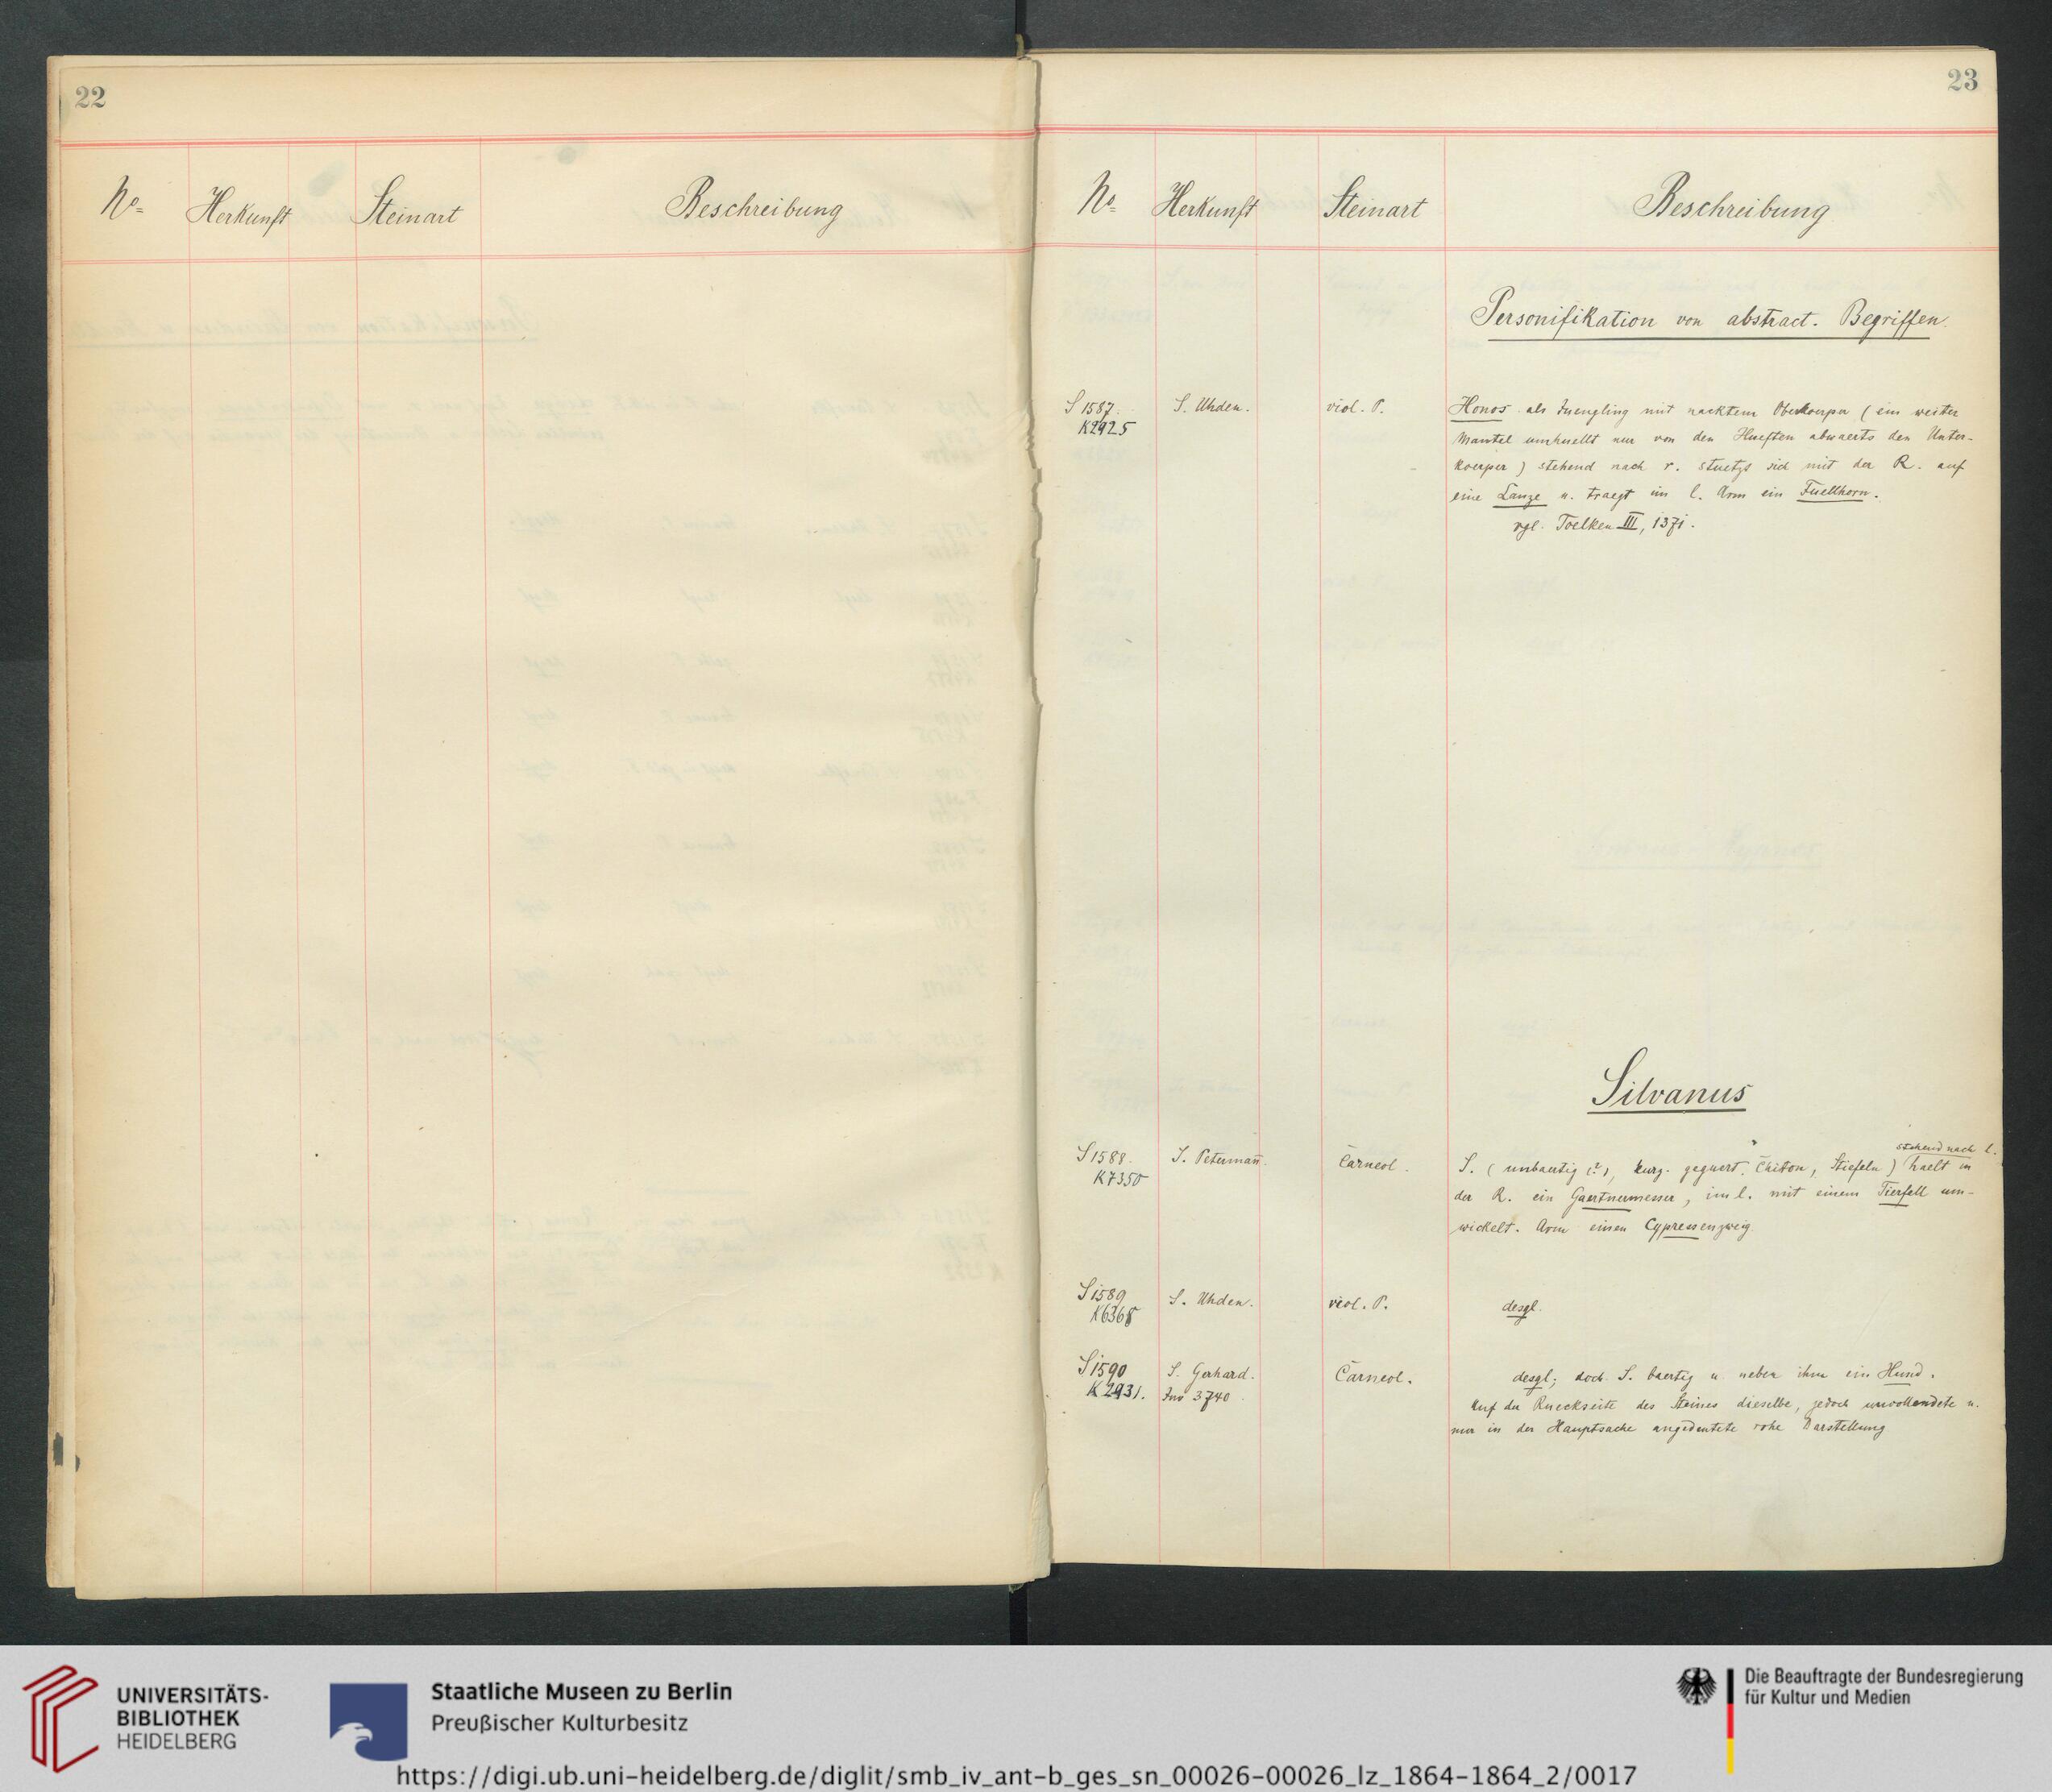 22
No= Herkunft Steinart Beschreibung
23
No= Herkunft Steinart Beschreibung
Personifikation von abstract. Begriffen.
S 1587. S. Uhden. viol. P. Honos als Juengling mit nacktem Oberkoerper (ein weiter
K2925 Mantel umhuellt nur von den Hueften abwaerts den Unter-
koerper) stehend nach r. stuetzt sich mit der R. auf
eine Lanze u. traegt im l. Arm ein Fuellhorn.
vgl. Toelken III, 1371.
Silvanus
stehend nach l.
S 1588. S. Petermañ. Carneol. S. (unbaertig (?), kurz. geguert. Chiton, Stiefeln) haelt in
K7350 der R. ein Gaertnermesser, im l. mit einem Tierfell um-
wickelt. Arm einen Cypressenzweig.
S 1589 S. Uhden. viol. P. desgl.
K6368
S 1590 S. Gerhard. Carneol. desgl; doch S. baertig u. neben ihm ein Hund.
K 2931. Inv 3740. Auf der Rueckseite des Steines dieselbe, jedoch unvollendete u.
nur in der Hauptsache angedeutete rohe Darstellung
UNIVERSITÄTS-
BIBLIOTHEK
HEIDELBERG
Staatliche Museen zu Berlin
Preußischer Kulturbesitz
Die Beauftragte der Bundesregierung
für Kultur und Medien
https://digi.ub.uni-heidelberg.de/diglit/smb_iv_ant-b_ges_sn_00026-00026_lz_1864-1864_2/0017